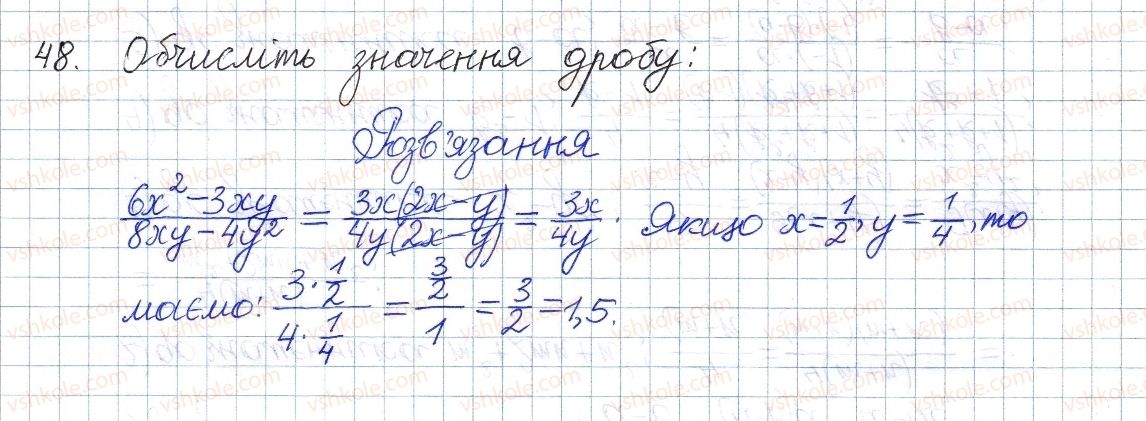 48. Обчисліть значення дробу:
Розв'язання
(6x² - 3xy)/(8xy - 4y²) = (3x(2x - y))/(4y(2x - y)) = 3x/4y. Якщо x = 1/2, y = 1/4, то
маємо: (3·1/2)/(4·1/4) = (3/2)/1 = 3/2 = 1,5.